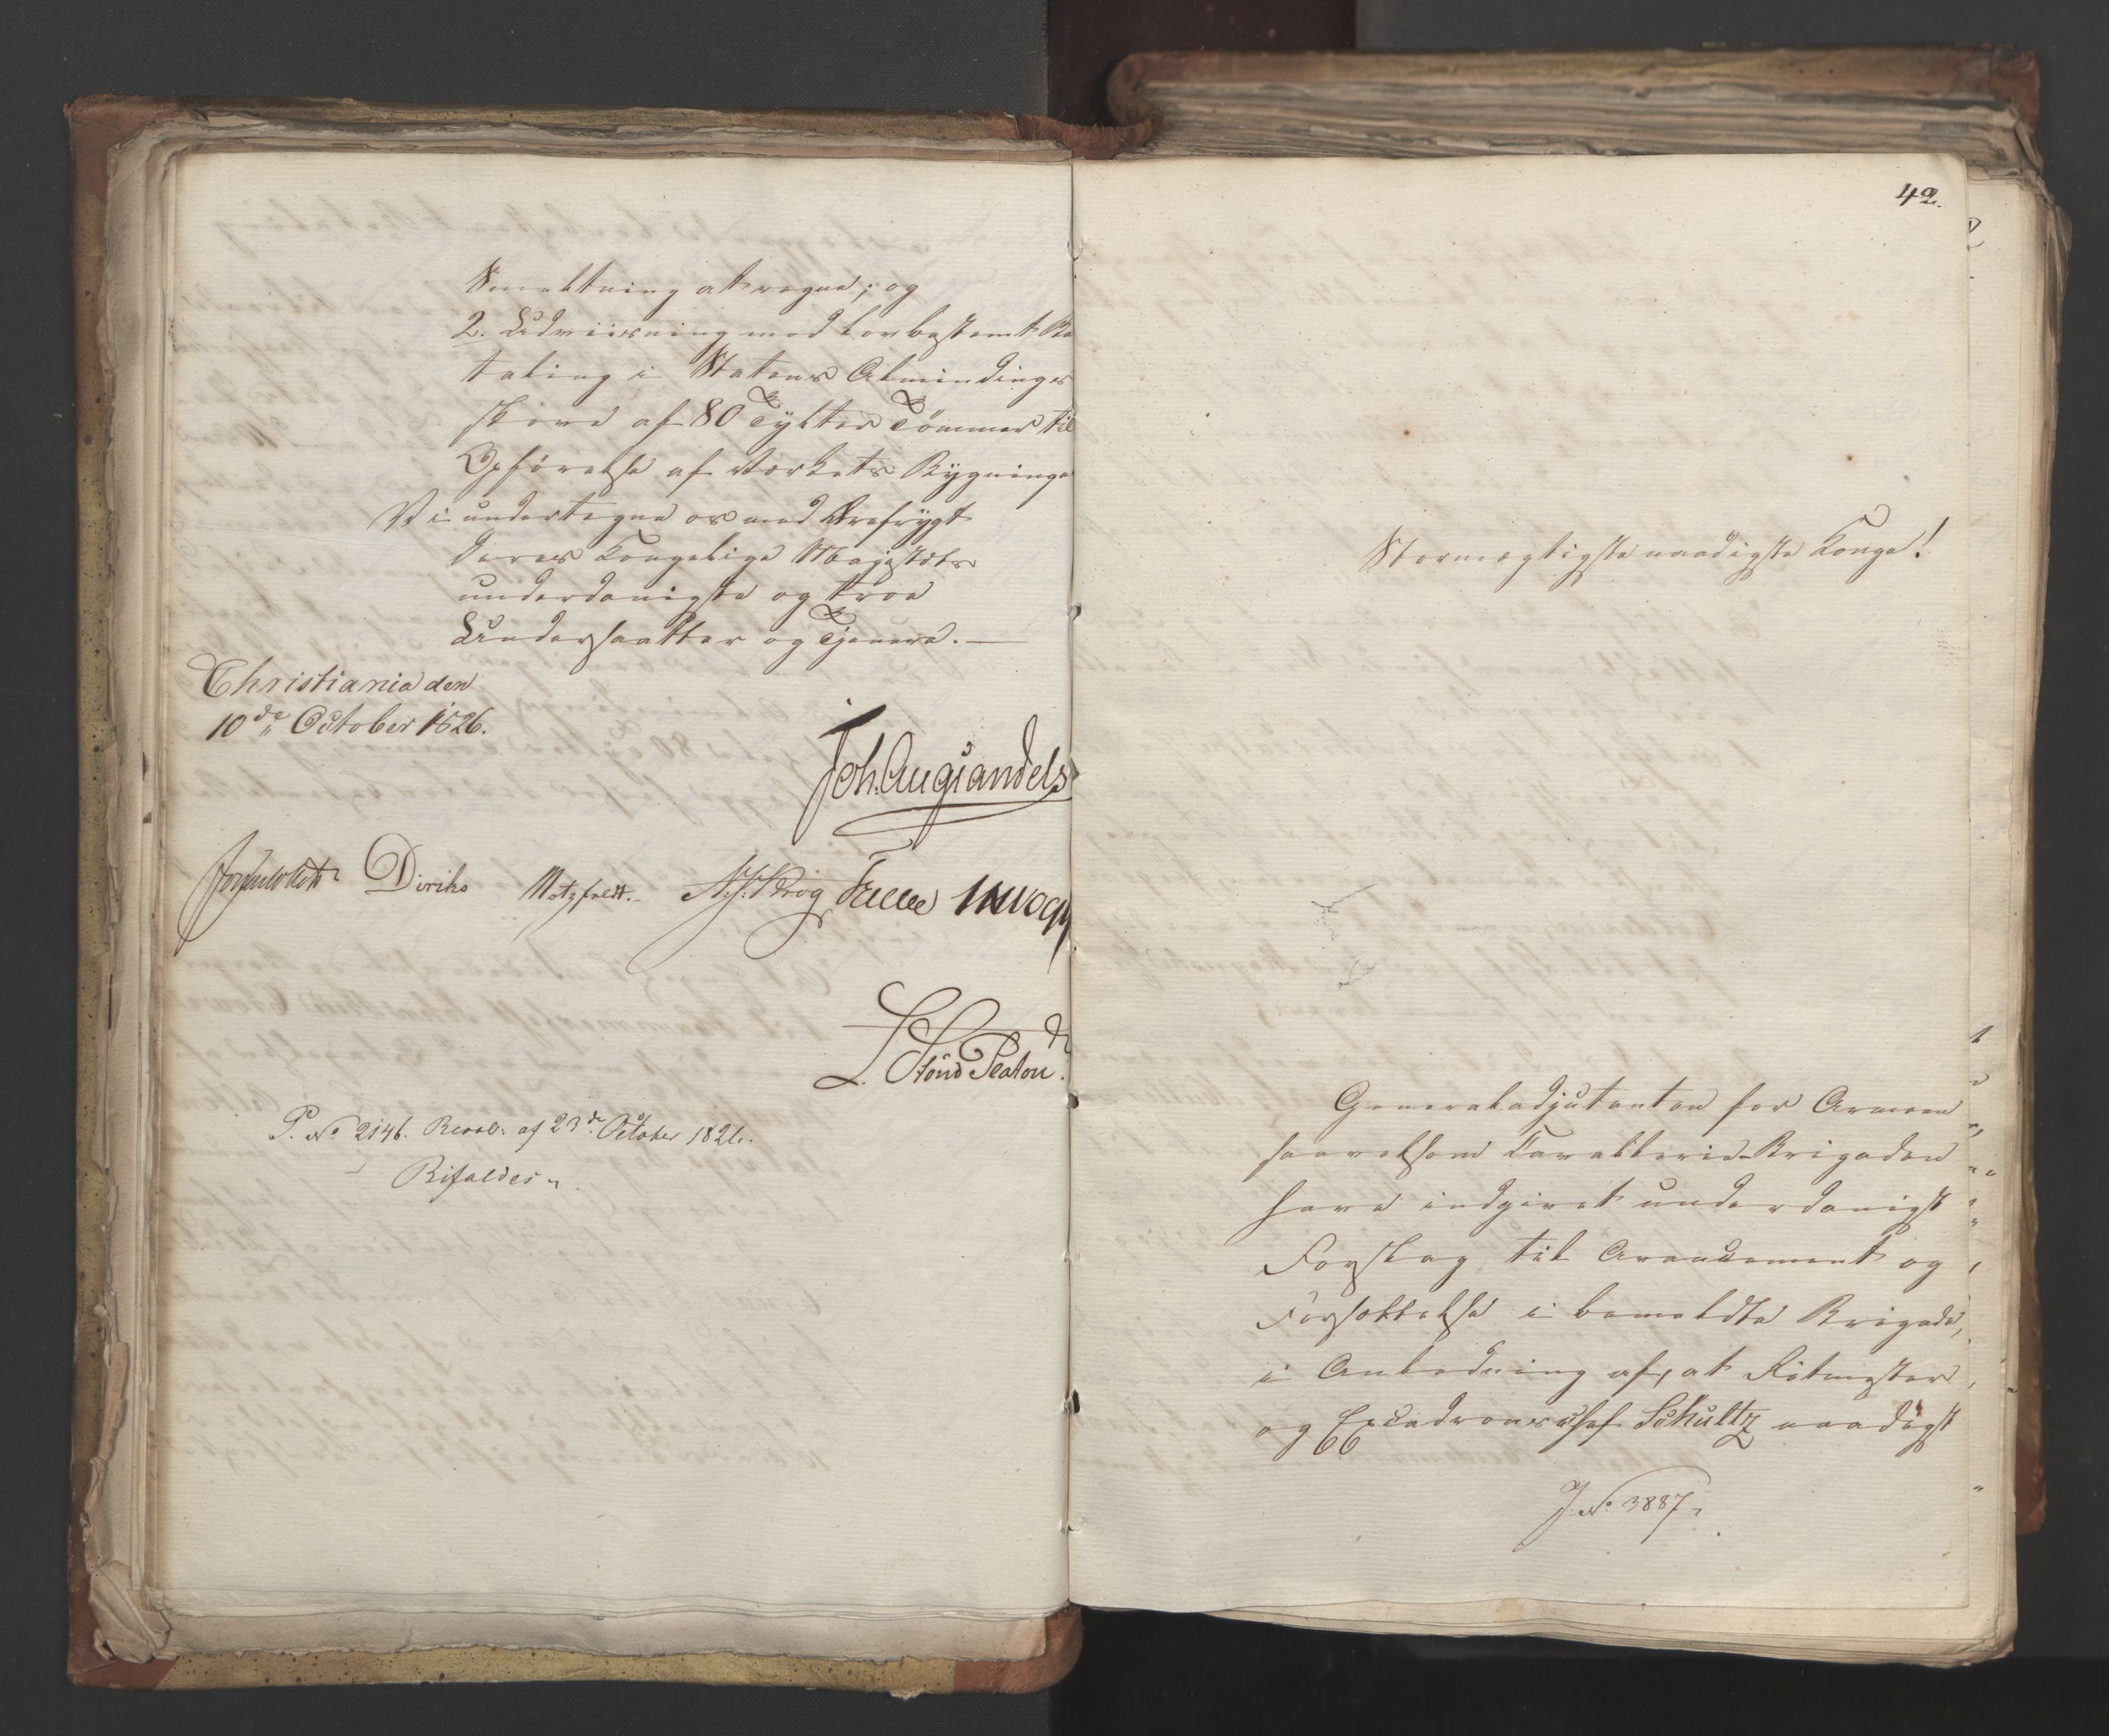 Smeltning at regne; og
2. Udviisning mod lovbestemt Be
taling i Statens Almindings
skove af 80 Tylter Tømmer til
Opførelse af Værkets Bygninge
Vi undertegne os med Ærefrygt
Deres Kongelige Majestæts
underdanigste og troe
Undersaatter og Tjenere. —
Christiania den
10de October 1826.
Joh. Aug Sandels
Diriks Motzfeldt. Krog Falle
L. Stoud Platou
P. No 2146. Resol: af 23de October 1826.
Bifaldes
42.
Stormægtigste naadigste Konge!
Generaladjutanten for Armeen
saavelsom Cavallerie-Brigaden
have indgivet underdanigst
Forslag til Avancement og
Forsættelse i bemeldte Brigade,
i Anledning af, at Ritmester
og Escadronschef Schultz naadigst
J. No 3887